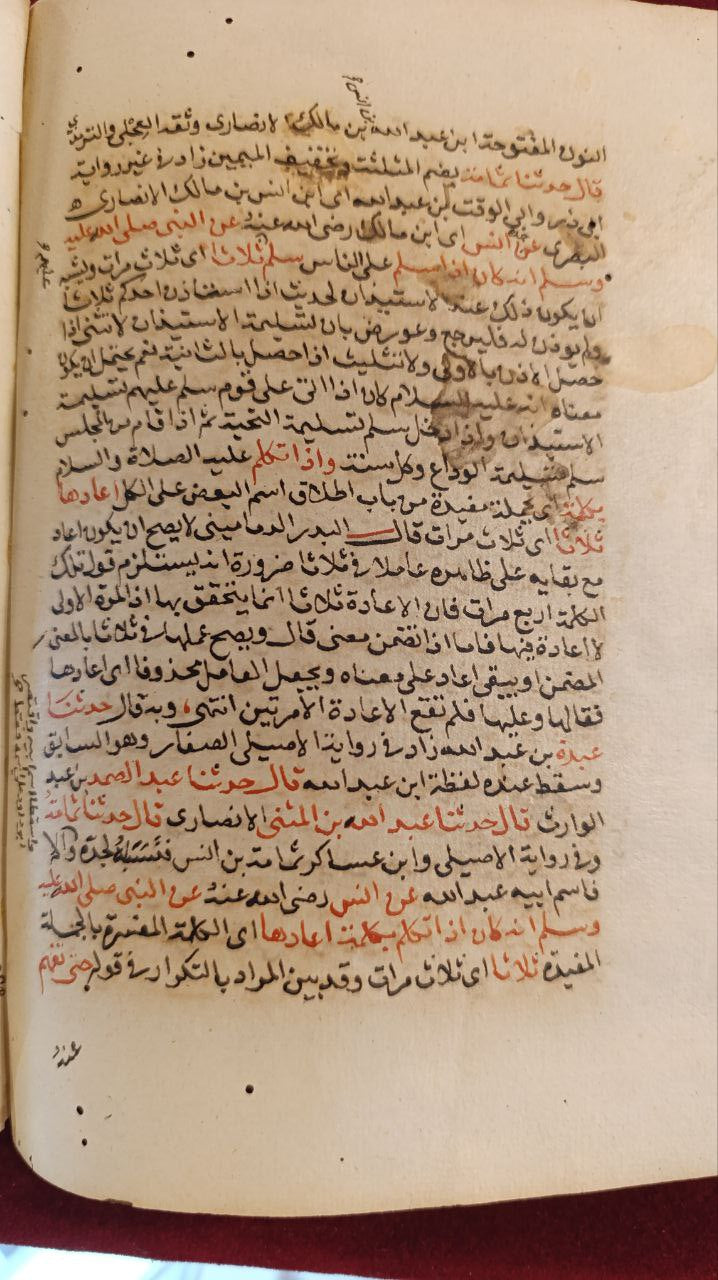 بن انس
النون المفتوحة ابن عبد الله بن مالك الانصارى وثقه العجلى والترمذى
قال حدثنا ثمامة بضم المثلثة وتخفيف الميمين زاد فى غير رواية
ابى ذر وابى الوقت بن عبد الله اى ابن انس بن مالك الانصارى
البصرى عن جده انس اى ابن مالك رضى الله عنه عن النبى صلى الله عليه
وسلم انه كان اذا سلم على الناس سلم ثلاثا اى ثلاث مرات ويشبه
ان يكون ذلك عند الاستيذان لحديث اذا استاذن احدكم ثلاثا
ولم يوذن له فليرجع وعورض بان تسليمة الاستيذان لا تثنى اذا
حصل الاذن بالاولى ولا تثلث اذا حصل بالثانية نعم يحتمل ان يكون
معناه انه عليه السلام كان اذا اتى على قوم سلم عليهم تسليمة
الاستيذان واذا دخل سلم تسليمة التحية ثم اذا قام من المجلس
سلم تسليمة الوداع وكل سنة واذا تكلم عليه الصلاة والسلام
بكلمة اى بجملة مفيدة من باب اطلاق اسم البعض على الكل اعادها
ثلاثا اى ثلاث مرات قال البدر الدمامينى لا يصح ان يكون اعاد
مع بقايه على ظاهره عاملا فى ثلاثا ضرورة انه يستلزم قول تلك
الكلمة اربع مرات فان الاعادة ثلاثا انما يتحقق بها اذ المرة الاولى
لا اعادة فيها فاما اذا تضمن معنى قال ويصح عملها فى ثلاثا بالمعنى
المضمن او يبقى اعاد على معناه ويجعل العامل محذوفا اى اعادها
فقالها وعليها فلم تقع الاعادة الا مرتين انتهى وبه قال حدثنا
عبدة بن عبد الله زاد فى رواية الاصيلى الصفار وهو السابق
وسقط عنده لفظة ابن عبد الله قال حدثنا عبد الصمد بن عبد
الوارث قال حدثنا عبد الله بن المثنى الانصارى قال حدثنا ثمامة
وفى رواية الاصيلى وابن عساكر ثمامة بن انس فنسبه لجده والا
فاسم ابيه عبد الله عن انس رضى الله عنه عن النبى صلى الله عليه
وسلم انه كان اذا تكلم بكلمة اعادها اى الكلمة المفسرة بالجملة
المفيدة ثلاثا اى ثلاث مرات وقد بين المراد بالتكرار فى قوله حتى تفهم
عنه